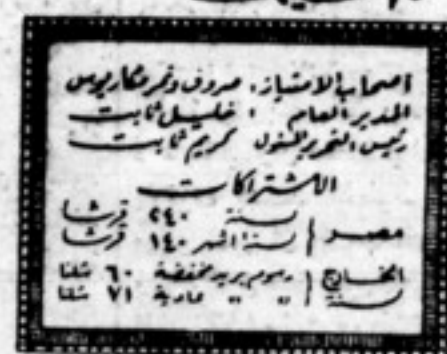 اصحاب الامتياز: صروف ونمر ومكاريوس
المدير العام : خليل ثابت
رئيس التحرير المسئول كريم ثابت
الاشتراكات
مصر { سنة ٢٤٠ قرشا
ستة اشهر ١٤٠ قرشا
الخارج { رسوم بريد مخفضة ٦٠ شلنا
سنة „ „ عادية ٧١ شلنا